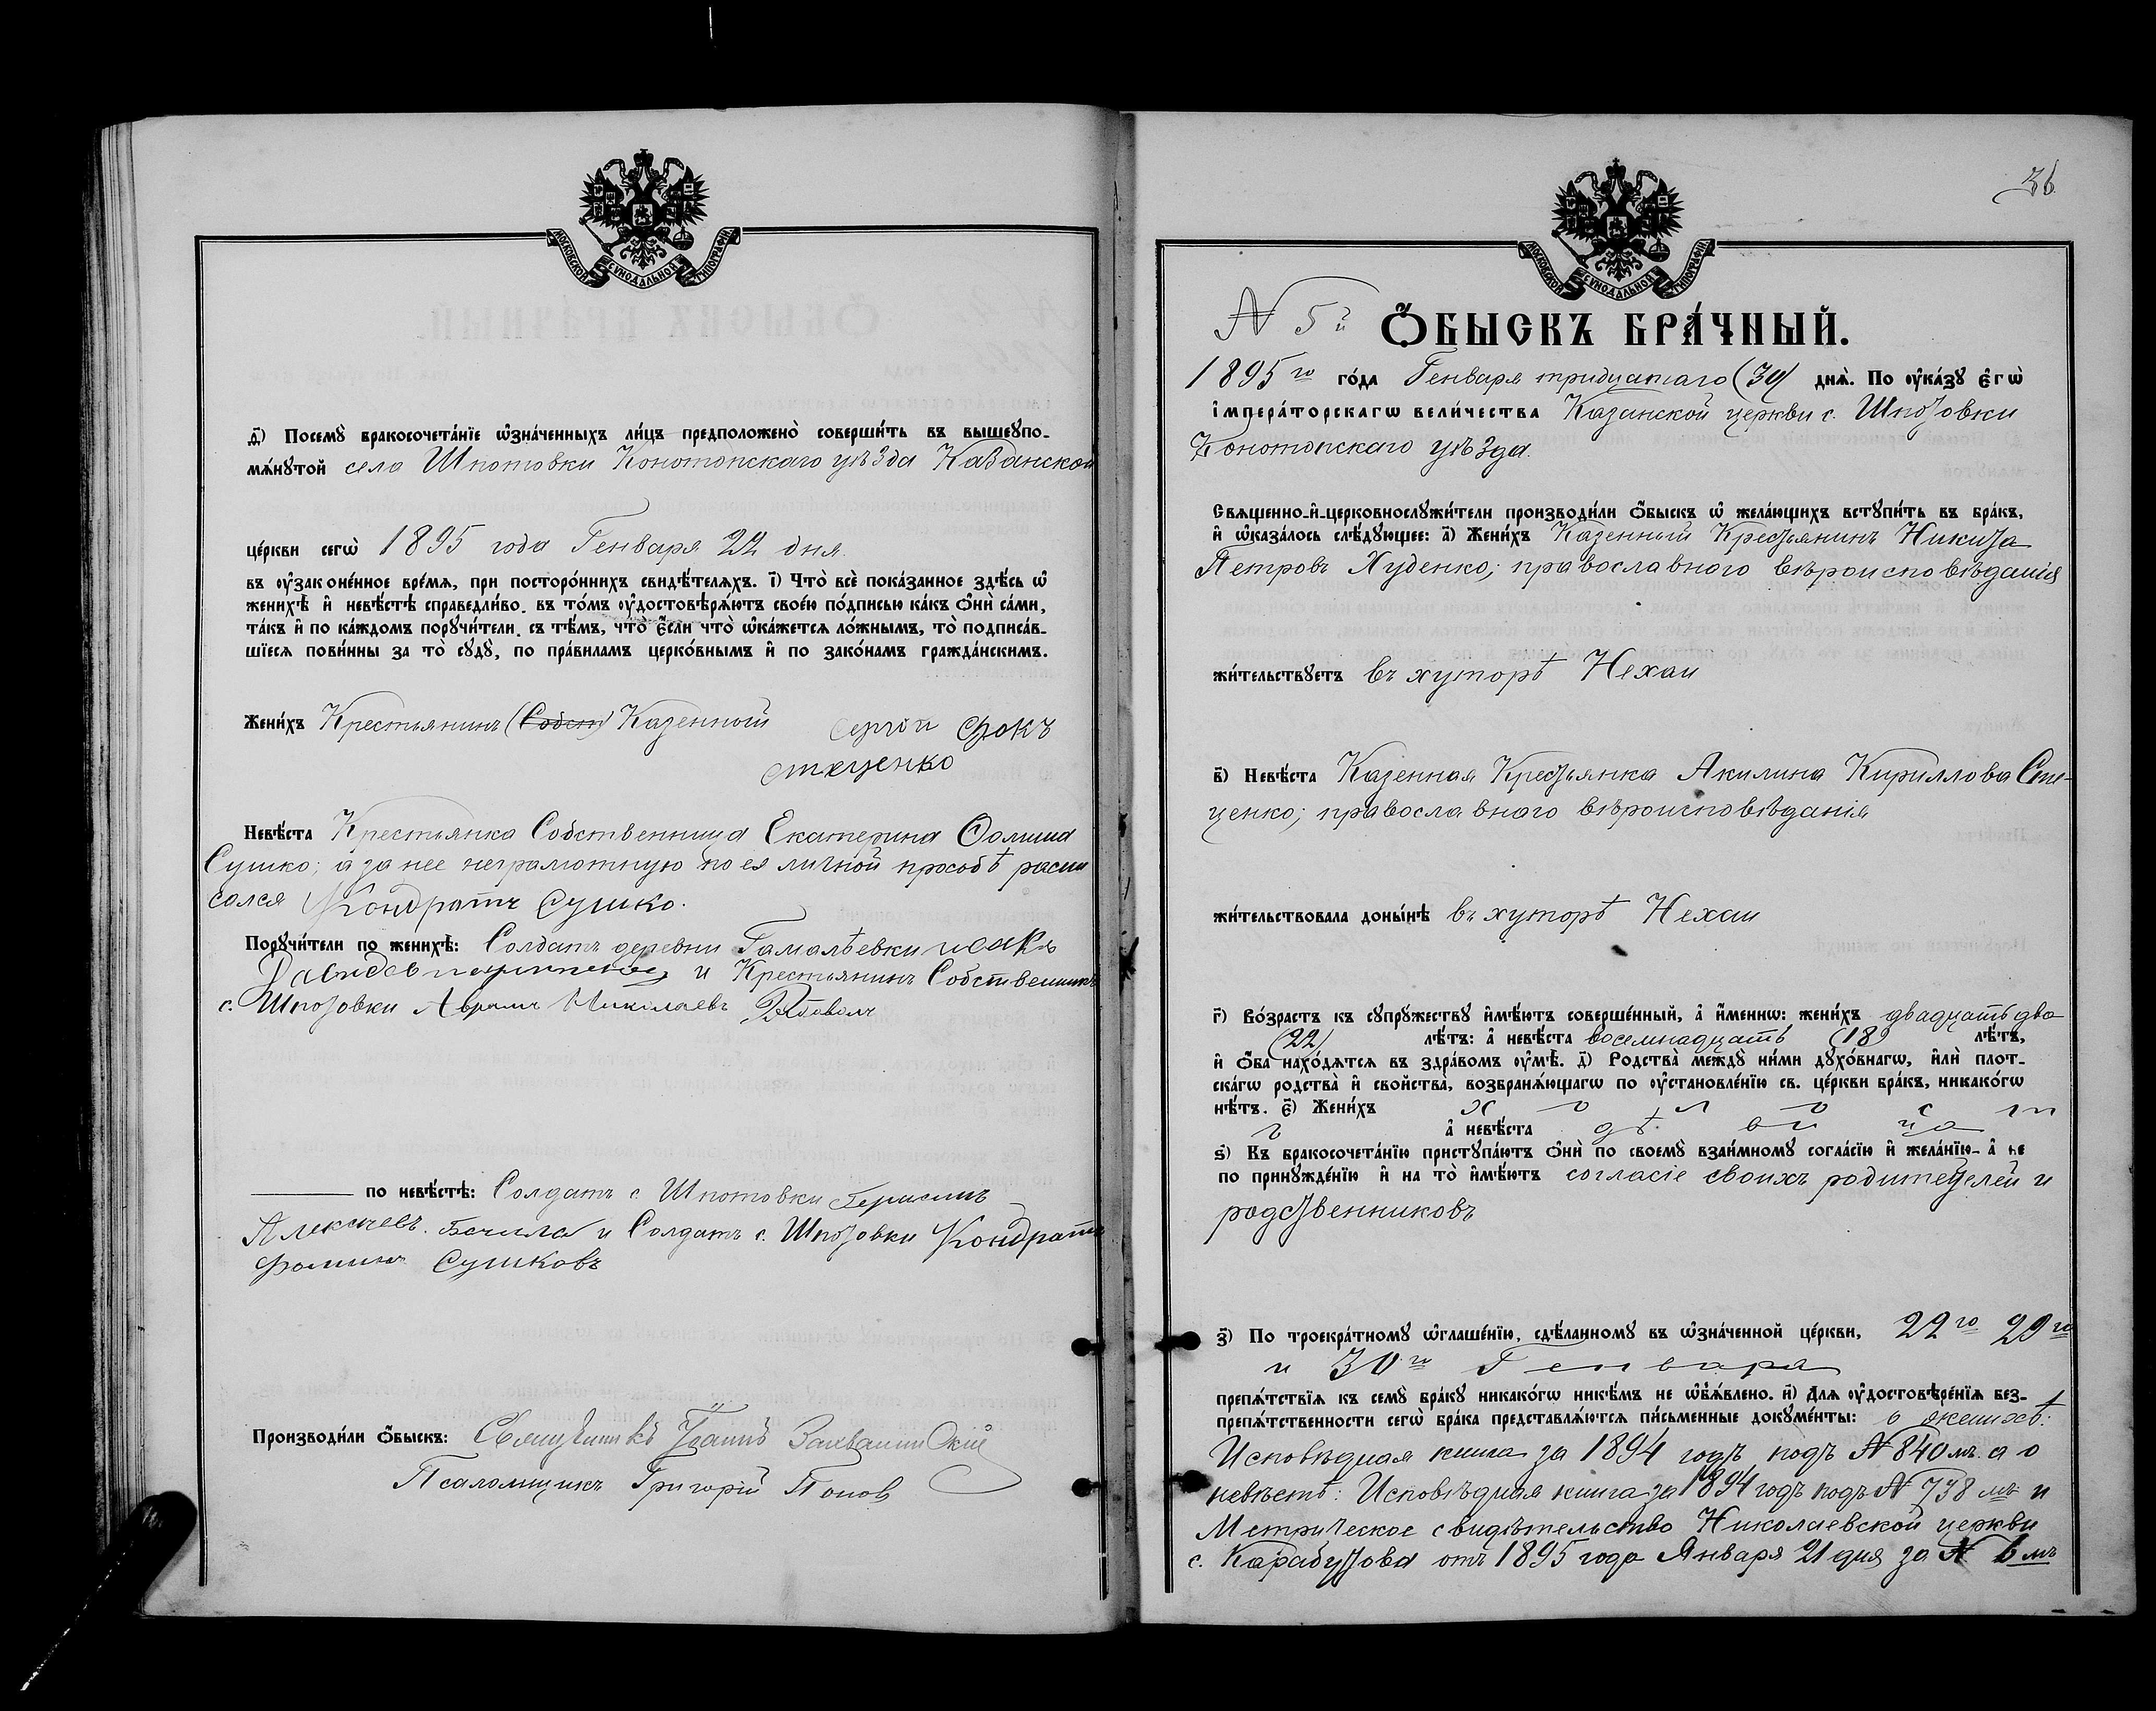 МОСКОВСКОЙ СѴНОДАЛЬНОЙ ТИПОГРАФІИ
д҃) Посемꙋ̀ бракосочета́нїе ѡ҆зна́ченныхъ ли́цъ предположено̀ соверши́ть въ вышеꙋпо-
мѧ́нꙋтой села Шпотовки Конотопскаго уѣзда Казанской
це́ркви сегѡ̀ 1895 года Генваря 22 дня
въ ᲂу҆законе́нное вре́мѧ, при посторо́ннихъ свидѣ́телѧхъ. і҃) Что̀ всѐ пока́занное здѣ́сь ѡ҆
женихѣ̀ и҆ невѣ́стѣ справедли́во, въ то́мъ ᲂу҆достовѣрѧ́ютъ свое́ю по́дписью ка́къ ѻ҆нѝ са́ми,
та́къ и҆ по ка́ждомъ порꙋчи́тели, съ тѣ́мъ, что̀ є҆́сли что̀ ѡ҆ка́жетсѧ ло́жнымъ, то̀ подписа́в-
шїесѧ пови́нны за то̀ сꙋдꙋ̀, по пра́виламъ церко́внымъ и҆ по зако́намъ гражда́нскимъ.
Жени́хъ Крестьянинъ (Собст) Казенный Сергій Фокъ
стеценко
Невѣ́ста Крестьянка Собственница Екатерина Ѳомина
Сушко; а за нее неграмотную по ея личной просьбѣ распи
сался Кондратъ Сушко.
Порꙋчи́тели по женихѣ̀: Солдатъ деревни Гамалѣевки исакъ
Давидов и Крестьянинъ Собственникъ
с. Шпотовки Аврамъ Николаевъ
по невѣ́стѣ: Солдатъ с. Шпотовки Герасимъ
Алексѣевъ и Солдатъ с. Шпотовки Кондратъ
Фоминъ Сушковъ
Производи́ли ѻ҆́быскъ: Священникъ Іоаннъ
Псаломщикъ Григорій Попов
36
МОСКОВСКОЙ СѴНОДАЛЬНОЙ ТИПОГРАФІИ
N 5й Ѻ҆́БЫСКЪ БРА́ЧНЫЙ.
1895го го́да Генваря тридцатаго (30) днѧ̀. По ᲂу҆ка́зꙋ є҆гѡ̀
і҆мпера́торскагѡ вели́чества Казанской церкви с. Шпотовки
Конотопскаго уѣзда.
Свѧщенно-и҆-церковнослꙋжи́тели производи́ли ѻ҆́быскъ ѡ҆ жела́ющихъ встꙋпи́ть въ бра́къ,
и҆ ѡ҆каза́лось слѣ́дꙋющее: а҃) Жени́хъ Казенный Крестьянинъ Никита
Петровъ Худенко; православного вѣроисповѣданія
жи́тельствꙋетъ въ хуторѣ Нехаи
в҃) Невѣ́ста Казенная Крестьянка Акилина Кириллова Сте-
ценко; православнаго вѣроисповѣданія
жи́тельствовала доны́нѣ въ хуторѣ Нехаи
г҃) Во́зрастъ къ сꙋпрꙋ́жествꙋ и҆мѣ́ютъ соверше́нный, а҆ и҆́меннѡ: жени́хъ двадцать два
(22) лѣ́тъ: а҆ невѣ́ста восемнадцать (18) лѣ́тъ,
и҆ ѻ҆́ба нахо́дѧтсѧ въ здра́вомъ ᲂу҆мѣ̀. д҃) Родства̀ междꙋ̀ ни́ми дꙋхо́внагѡ, и҆лѝ плот-
ска́гѡ родства̀ и҆ сво́йства, возбранѧ́ющагѡ по ᲂу҆становле́нїю св. це́ркви бра́къ, никако́гѡ
нѣ́тъ. є҃) Жени́хъ холост
ъ а҆ невѣ́ста дѣвица
ѕ҃) Къ бракосочета́нїю пристꙋпа́ютъ ѻ҆нѝ по своемꙋ̀ взаи́мномꙋ согла́сїю и҆ жела́нїю, а҆ не
по принꙋжде́нїю и҆ на то̀ и҆мѣ́ютъ согласіе своихъ родителей и
родственниковъ
з҃) По троекра́тномꙋ ѡ҆глаше́нїю, сдѣ́ланномꙋ въ ѡ҆зна́ченной це́ркви, 22го 29го
и 30го Генваря
препѧ́тствїѧ къ семꙋ̀ бра́кꙋ никако́гѡ никѣ́мъ не ѡ҆б̾ѧ́влено. и҃) Длѧ ᲂу҆достовѣре́нїѧ без-
препѧ́тственности сегѡ̀ бра́ка представлѧ́ютсѧ пи́сьменные докꙋме́нты: о женихѣ:
Исповѣдная книга за 1894 годъ подъ N 840мъ. а о
невѣстѣ: Исповѣдная книга за 1894 годъ подъ N 738мъ и
Метрическое свидѣтельство Николаевской церкви
с. Карабутова отъ 1895 года Января 21 дня за N 6мъ